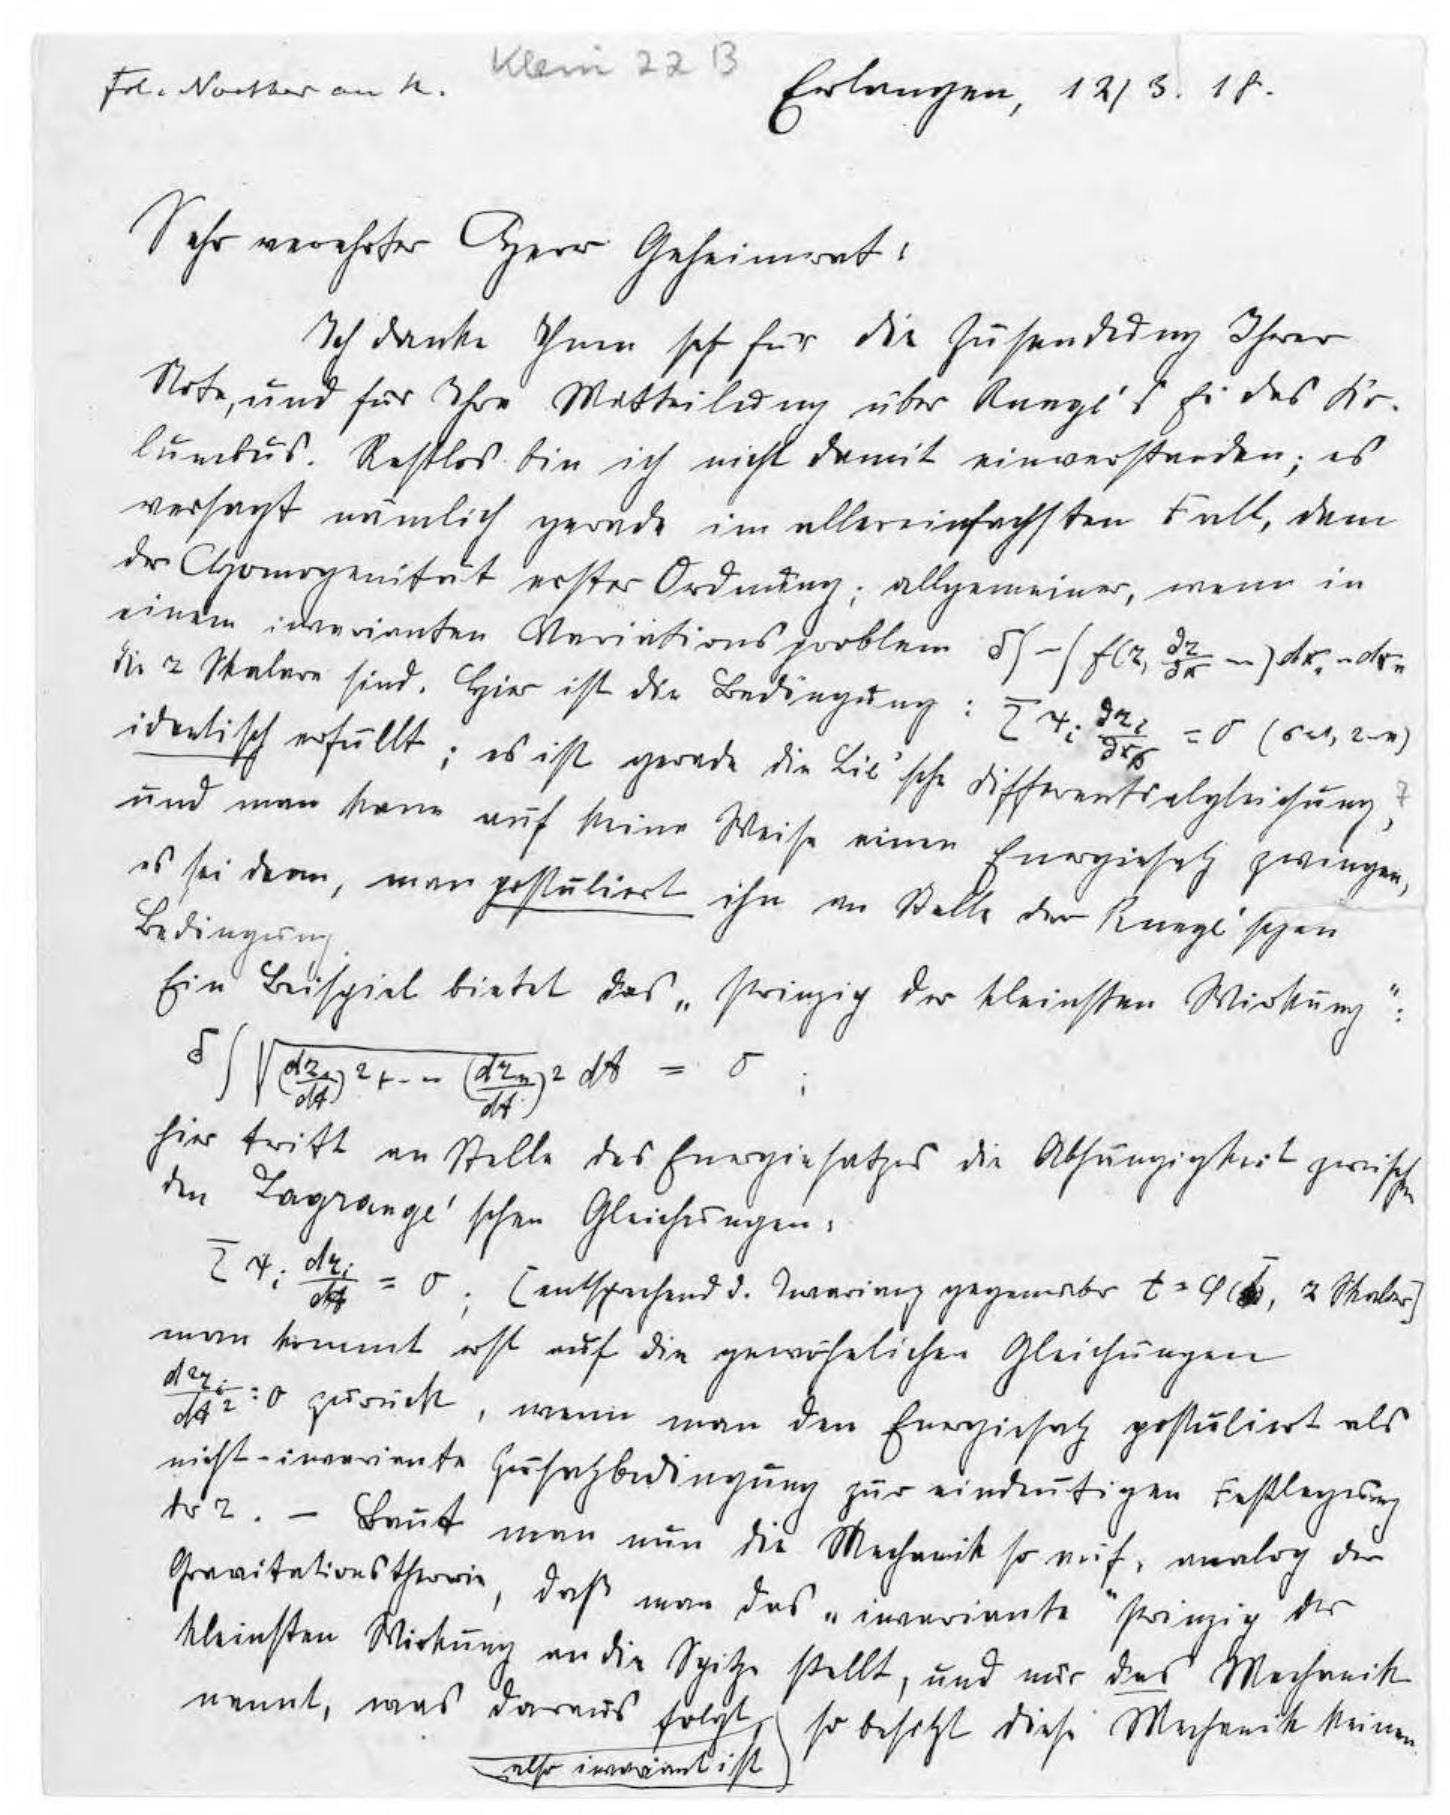 Frl. Noether an K.
Klein 22 B
Erlangen, 12/3. 18.
Sehr verehrter Herr Geheimrat!
Ich danke Ihnen sehr für die Zusendung Ihrer
Note, und für Ihre Mitteilung über Runge's Ei des Ko-
lumbus. Restlos bin ich nicht damit einverstanden; es
versagt nämlich gerade im allereinfachsten Fall, dem
der Homogenität erster Ordnung; allgemeiner, wenn in
einem invarianten Variationsproblem δ∫–∫ f(z, ∂z/∂x –) dx₁–dxₙ
die z Skalare sind. Hier ist die Bedingung: Σ ψᵢ ∂zᵢ/∂xσ = 0 (σ=1, 2–n)
identisch erfüllt; es ist gerade die Lie'sche Differentialgleichung,
und man kann auf keine Weise einen Energiesatz zwingen,
es sei denn, man postuliert ihn an Stelle der Runge'schen
Bedingung.
Ein Beispiel bietet das „Prinzip der kleinsten Wirkung":
δ∫√(dz₁/dt)² + –– (dzₙ/dt)² dt = 0;
hier tritt an Stelle des Energiesatzes die Abhängigkeit zwischen
den Lagrange'schen Gleichungen:
Σ ψᵢ dzᵢ/dt = 0; [entsprechend d. Invarianz gegenüber t = φ( ), z Skalar]
man kommt erst auf die gewöhnlichen Gleichungen
d²zᵢ/dt² = 0 zurück, wenn man den Energiesatz postuliert als
nicht-invariante Zusatzbedingung zur eindeutigen Festlegung
der z. – Baut man nun die Mechanik so auf, analog der
Gravitationstheorie, daß man das „invariante" Prinzip der
kleinsten Wirkung an die Spitze stellt, und nur das Mechanik
nennt, was daraus folgt,
also invariant ist
so besitzt diese Mechanik keinen